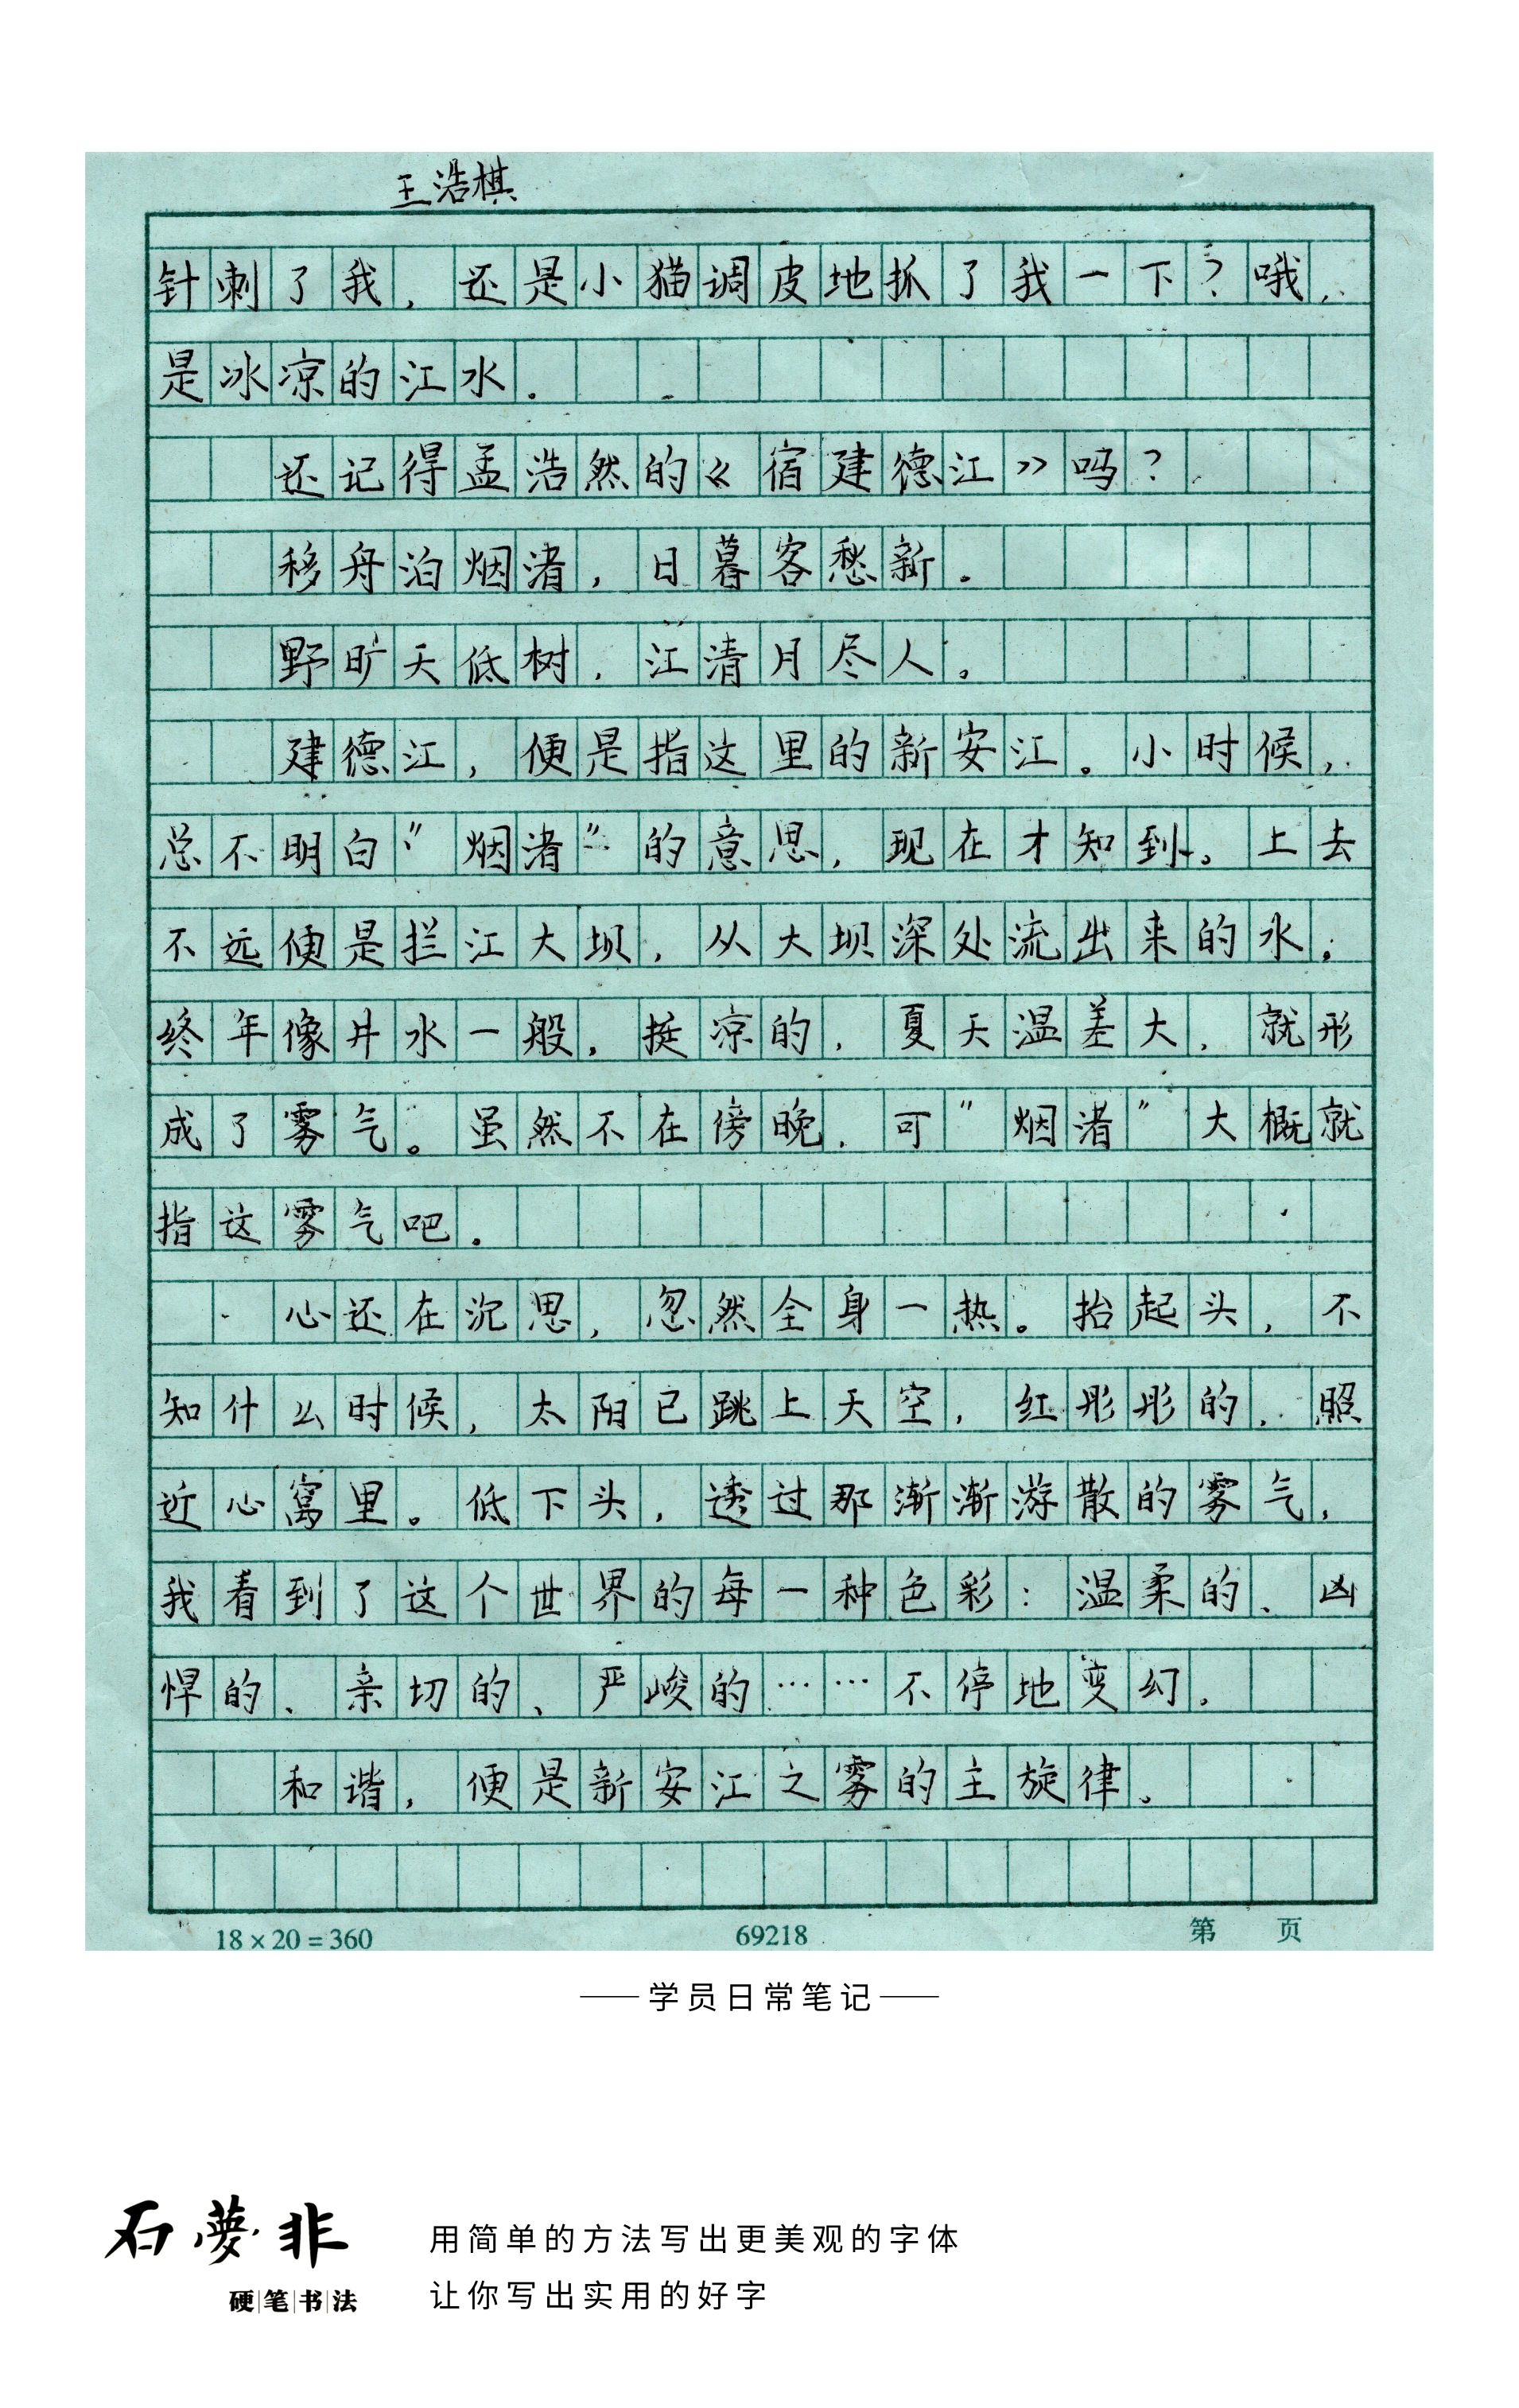 王浩棋
针刺了我，还是小猫调皮地抓了我一下？哦，
是冰凉的江水。
还记得孟浩然的《宿建德江》吗？
移舟泊烟渚，日暮客愁新。
野旷天低树，江清月尽人。
建德江，便是指这里的新安江。小时候，
总不明白“烟渚”的意思，现在才知到。上去
不远便是拦江大坝，从大坝深处流出来的水，
终年像井水一般，挺凉的，夏天温差大，就形
成了雾气。虽然不在傍晚，可“烟渚”大概就
指这雾气吧。
心还在沉思，忽然全身一热。抬起头，不
知什么时候，太阳已跳上天空，红彤彤的，照
近心窝里。低下头，透过那渐渐游散的雾气，
我看到了这个世界的每一种色彩：温柔的、凶
悍的、亲切的、严峻的……不停地变幻。
和谐，便是新安江之雾的主旋律。
18×20=360 69218 第 页
——学员日常笔记——
石夢非
硬笔书法
用简单的方法写出更美观的字体
让你写出实用的好字